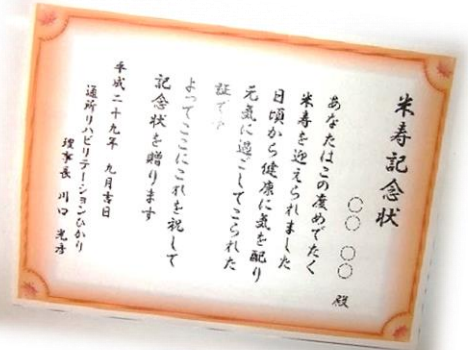 米寿記念状
○○ ○○ 殿
あなたはこの度めでたく
米寿を迎えられました
日頃から健康に気を配り
元気に過ごしてこられた
証です
よってここにこれを祝して
記念状を贈ります
平成二十九年 九月吉日
通所リハビリテーションひかり
理事長 川口 光彦